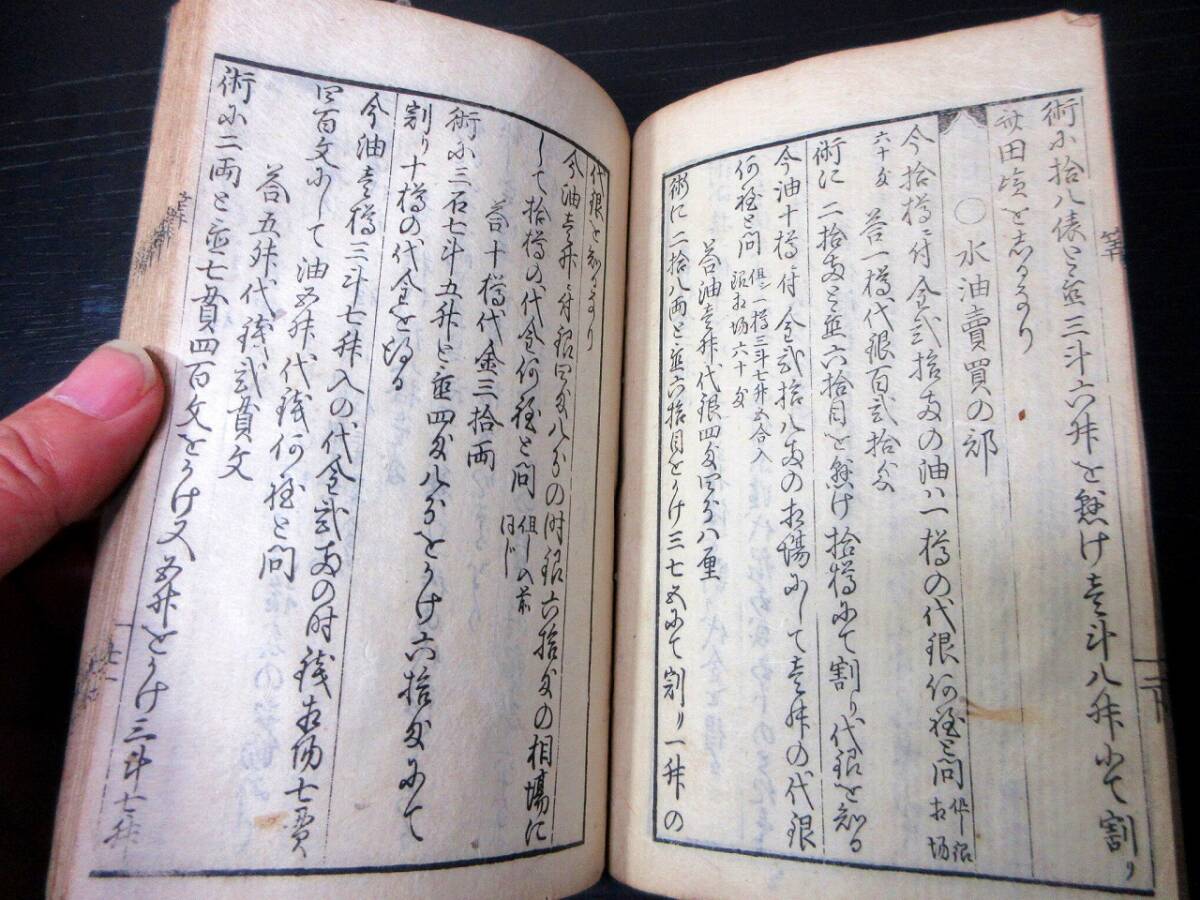 術に拾八俵と立三斗六升を懸け壱斗八升にて割り
新田塩としるなり
○水油賣買の部
今拾樽ニ付金弐拾両の油八一樽の代銀何程と問 但シ銀相場
六十匁 答一樽代銀百弐拾匁
術に二拾両と立六拾目を懸け拾樽にて割り代銀を知る
今油十樽ニ付金弐拾八両の相場にして壱升の代銀
何程と問 但シ一樽三斗七升五合入 銀相場六十匁
答油壱升代銀四匁四分八厘
術に二拾八両と立六拾目をかけ三七五にて割り一升の
代銀を知るなり
今油壱升ニ付銀四匁八分の時銀六拾匁の相場に
して拾樽の代金何程と問 但し入前同じ
答十樽代金三拾両
術に三石七斗五升と立四匁八分をかけ六拾匁にて
割り十樽の代金を得る
今油壱樽三斗七升入の代金弐両の時銭相場七貫
四百文にして油五升代銭何程と問
答五升代銭弐貫文
術に二両と立七貫四百文をかけ又五升をかけ三斗七升